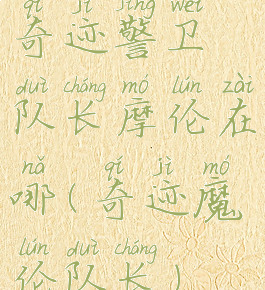 qí jì jǐng wèi
奇迹警卫
duì cháng mó lún zài
队长摩伦在
nǎ qí jì mó
哪(奇迹魔
lún duì cháng
伦队长)